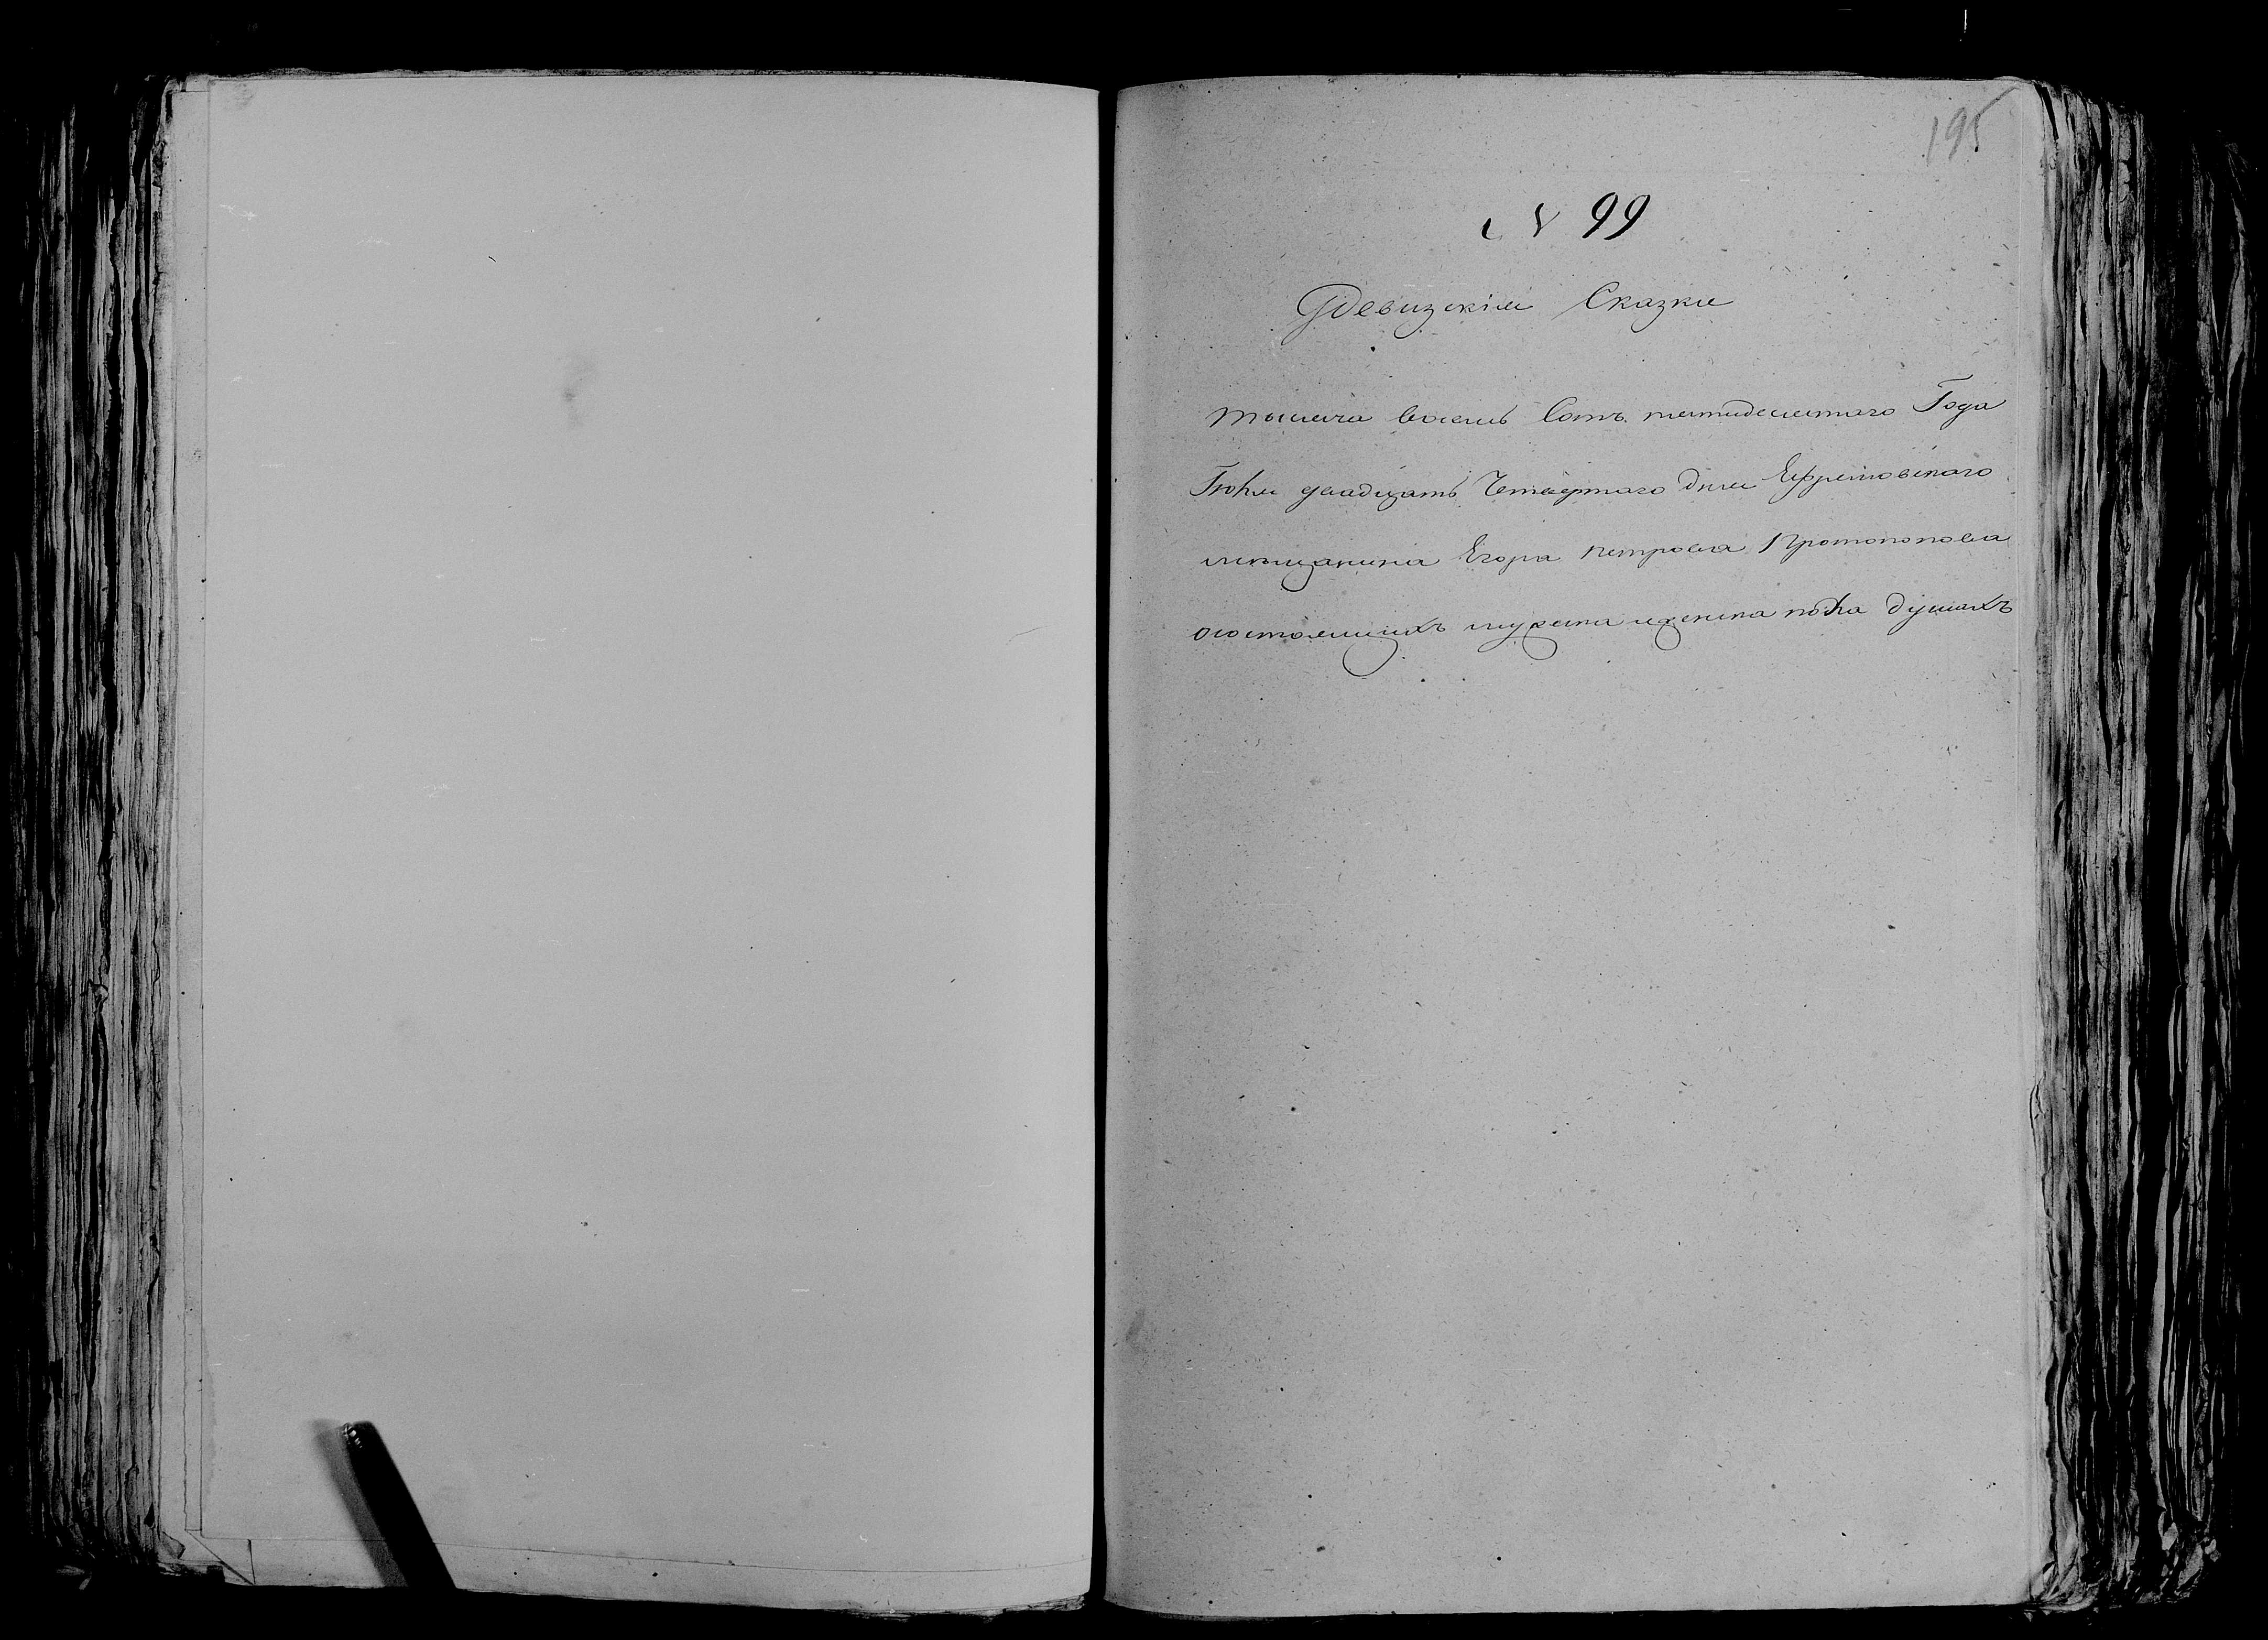 195
N 99
Ревизскія Сказки
тысеча восемь Сотъ пятидесятаго Года
Іюня двадцать Четвертаго дня Ефремовскаго
мещанина Егора петрова Протопопова
осостоящихъ мужска иженска пола душахъ